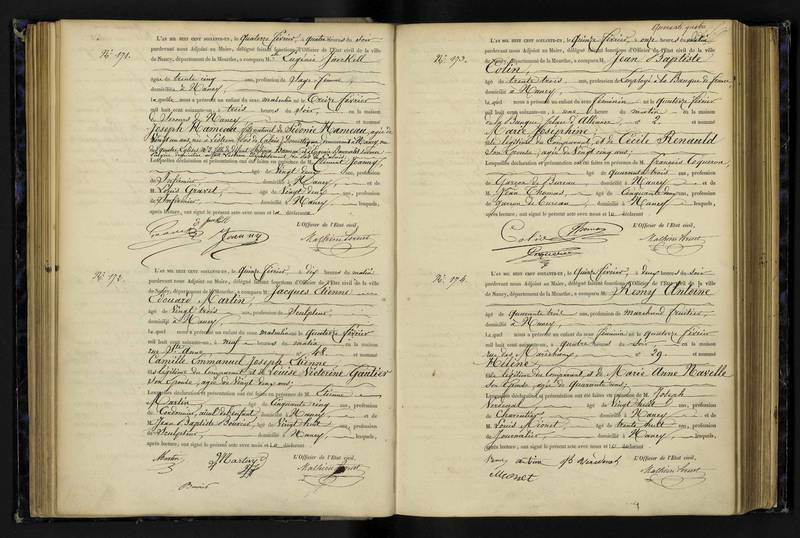 Nº 171.
L'AN MIL HUIT CENT SOIXANTE-UN, le Quatorze février, à quatre heures du soir
pardevant nous Adjoint au Maire, délégué faisant fonctions d'Officier de l'Etat civil de la ville
de Nancy, département de la Meurthe, a comparu M. Eugénie
âgée de trente cinq ans, profession de Sage-femme,
domiciliée à Nancy,
laquelle nous a présenté un enfant du sexe masculin né le Treize février
mil huit cent soixante-un, à trois heures du soir, en la maison
de Secours de Nancy et nommé
Joseph Hameau, fils naturel de Sidonie Hameau, âgée de
Vingt un ans, née à
Lesquelles déclaration et présentation ont été faites en présence de M. Clément Joanny,
âgé de Vingt deux ans, profession
d'Infirmier, domicilié à Nancy, et de
M. Louis Gravet, âgé de Vingt deux ans, profession
d'Infirmier, domicilié à Nancy, lesquels,
après lecture, ont signé le présent acte avec nous et la déclarante
L'Officier de l'Etat civil,
Gravet Joanny
Nº 172.
L'AN MIL HUIT CENT SOIXANTE-UN, le Quinze février, à dix heures du matin
pardevant nous Adjoint au Maire, délégué faisant fonctions d'Officier de l'Etat civil de la ville
de Nancy, département de la Meurthe, a comparu M. Jacques Etienne
Edouard Martin,
âgé de Vingt trois ans, profession de Sculpteur,
domicilié à Nancy,
lequel nous a présenté un enfant du sexe masculin né le Quatorze février
mil huit cent soixante-un, à neuf heures du matin, en la maison
rue Ste Anne, nº 48. et nommé
Camille Emmanuel Joseph Etienne,
fils légitime du Comparant et de Louise Victorine Gautier
Son Epouse, agée de Vingt cinq ans;
Lesquelles déclaration et présentation ont été faites en présence de M. Etienne
Martin, âgé de Cinquante cinq ans, profession
de Cordonnier, aïeul de l'enfant, domicilié à Nancy, et de
M. Jean Baptiste âgé de Vingt huit ans, profession
de Sculpteur, domicilié à Nancy, lesquels,
après lecture, ont signé le présent acte avec nous et le déclarant
L'Officier de l'Etat civil,
Martin Martin
Nº 173.
L'AN MIL HUIT CENT SOIXANTE-UN, le Quinze février, onze heures du matin
pardevant nous Adjoint au Maire, délégué faisant fonctions d'Officier de l'Etat civil de la ville
de Nancy, département de la Meurthe, a comparu M. Jean Baptiste
Colin,
âgé de trente trois ans, profession d'Employé à la Banque de france,
domicilié à Nancy,
lequel nous a présenté un enfant du sexe féminin né le Quatorze février
mil huit cent soixante-un, à heures du matin, en la maison
de la Banque, place d'Alliance, nº 2. et nommé
Marie Joséphine,
fille légitime du Comparant, et de Cécile Renauld
Son Epouse, agée de
Lesquelles déclaration et présentation ont été faites en présence de M. François
âgé de Quarante trois ans, profession
de Garçon de Bureau, domicilié à Nancy, et de
M. Jean Thomas, âgé de Cinquante ans, profession
de garçon de Bureau, domicilié à Nancy, lesquels,
après lecture, ont signé le présent acte avec nous et le déclarant
L'Officier de l'Etat civil,
Colin Thomas
Nº 174.
L'AN MIL HUIT CENT SOIXANTE-UN, le Quinze février, à deux heures du soir
pardevant nous Adjoint au Maire, délégué faisant fonctions d'Officier de l'Etat civil de la ville
de Nancy, département de la Meurthe, a comparu M. Rémy Antoine
âgé de Quarante trois ans, profession de marchand fruitier,
domicilié à Nancy,
lequel nous a présenté un enfant du sexe féminin né le Quatorze février
mil huit cent soixante-un, à quatre heures du soir, en la maison
rue des Maréchaux, nº 29. et nommé
Hélène,
fille légitime du Comparant et de Marie Anne Navelle
Son Epouse, agée de Quarante ans;
Lesquelles déclaration et présentation ont été faites en présence de M. Joseph
âgé de Vingt huit ans, profession
de Charpentier, domicilié à Nancy, et de
M. Louis Mionet, âgé de trente huit ans, profession
de Journalier, domicilié à Nancy, lesquels,
après lecture, ont signé le présent acte avec nous et le déclarant
L'Officier de l'Etat civil,